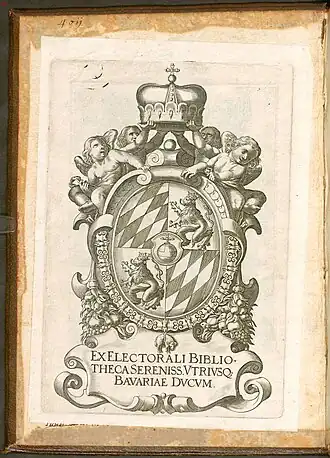 EX ELECTORALI BIBLIO-
THECA SERENISS. VTRIVSQ.
BAVARIAE DVCVM.